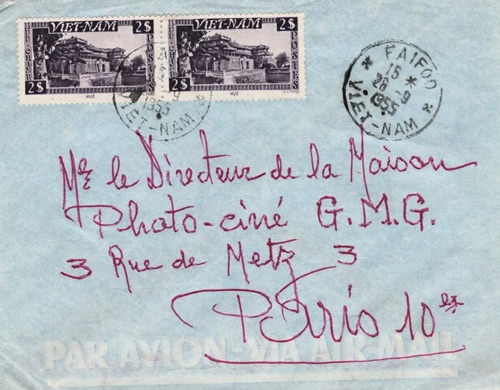 VIET-NAM 2$
2$ HUÉ
VIET-NAM 2$
2$ HUÉ
1955
VIET-NAM
* FAIFOO *
15 *
28-9
1955
VIET-NAM
Mr le Directeur de la Maison
Photo-ciné G.M.G.
3 Rue de Metz 3
Paris 10
PAR AVION-VIA AIR MAIL